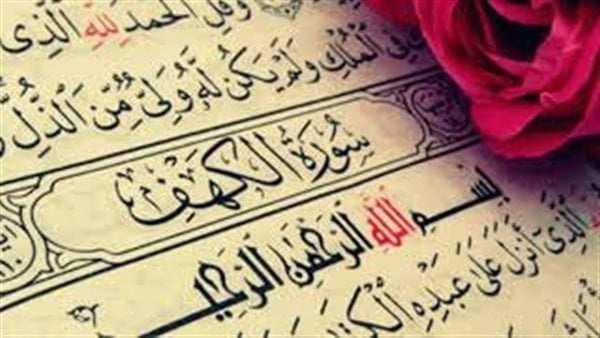 وَقُلِ الْحَمْدُ لِلَّهِ الَّذِى
فِى الْمُلْكِ وَلَمْ يَكُن لَّهُ وَلِىٌّ مِّنَ الذُّلِّ
سُورَةُ الكَهْفِ
بِسْمِ اللَّهِ الرَّحْمَٰنِ الرَّحِيمِ
الَّذِىٓ أَنزَلَ عَلَىٰ عَبْدِهِ الْكِتَٰبَ